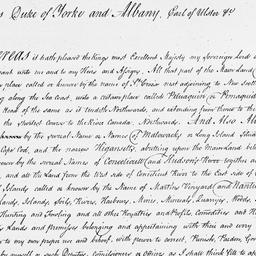 s Duke of Yorke and Albany, Earl of Ulster &c
reas it hath pleased the Kings most Excellent Majesty my Soveraign Lord a
rant unto me and to my Heires and Assigns, All that part of the Main Land
place called or knowne by the name of St Croix next adjoyning to New Scotl
ng along the Sea Coast, unto a certaine place called Petuaquine or Pemaquid
Head of the same as it tendeth Northwards, and extending from thence to the
the shortest Course to the River Canada Northwards. And Also All
by the severall Name or Names of Matowacks or long Island Situat
Cape Cod, and the narrow Higansetts, abutting upon the Main land betw
knowne by the severall Names of Connecticutt and Hudsons River together a
and all the Land from the West side of Conecticutt River to the East side of
Islands called or knowne by the Name of Martins Vineyard and Nantu
Islands, Soils, Rivers, Harbours, Mines, Minerals, Quarryes, Woods,
Hunting and Fowling and all other Royalties and Profitts, Comodities and H
Lands and premises belonging and appertaining with their and every
to my own proper use and behoof, with power to correct, Punish, Pardon, Gov
by myself or such Deputies, Comissioners or officers as I shall think fitt to ap